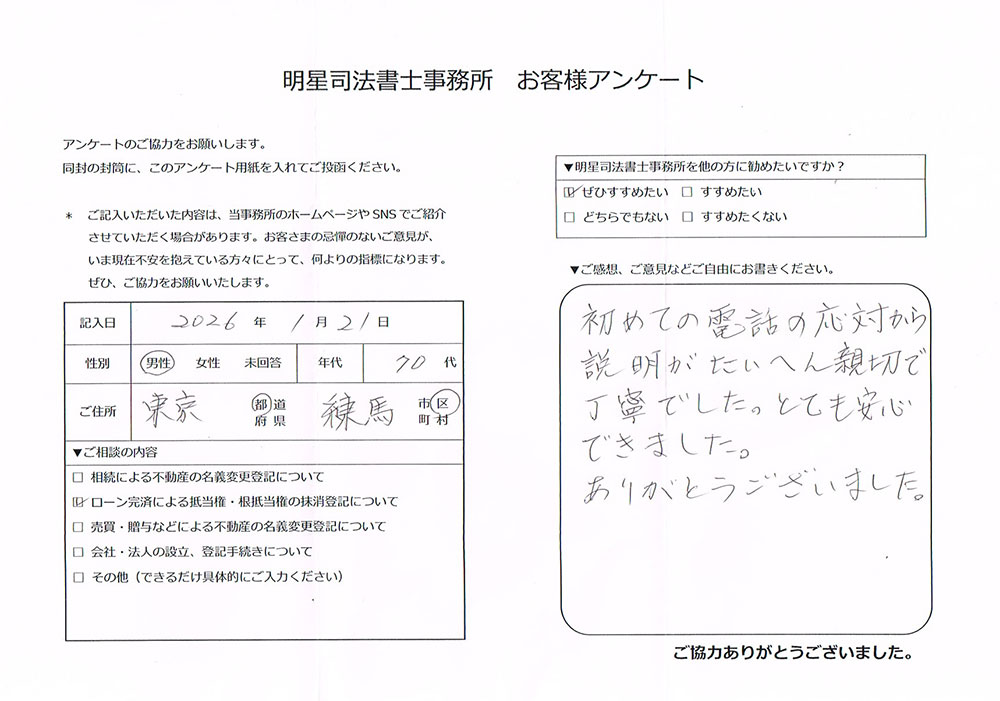 明星司法書士事務所　お客様アンケート
アンケートのご協力をお願いします。
同封の封筒に、このアンケート用紙を入れてご投函ください。
＊　ご記入いただいた内容は、当事務所のホームページや SNS でご紹介
させていただく場合があります。お客さまの忌憚のないご意見が、
いま現在不安を抱えている方々にとって、何よりの指標になります。
ぜひ、ご協力をお願いいたします。
記入日　2026 年 1 月 21 日
性別　男性　女性　未回答　年代　70 代
ご住所　東京 都道府県　練馬 市区町村
▼ご相談の内容
□ 相続による不動産の名義変更登記について
☑ ローン完済による抵当権・根抵当権の抹消登記について
□ 売買・贈与などによる不動産の名義変更登記について
□ 会社・法人の設立、登記手続きについて
□ その他（できるだけ具体的にご入力ください）
▼明星司法書士事務所を他の方に勧めたいですか？
☑ ぜひすすめたい　□ すすめたい
□ どちらでもない　□ すすめたくない
▼ご感想、ご意見などご自由にお書きください。
初めての電話の応対から
説明がたいへん親切で
丁寧でした。とても安心
できました。
ありがとうございました。
ご協力ありがとうございました。